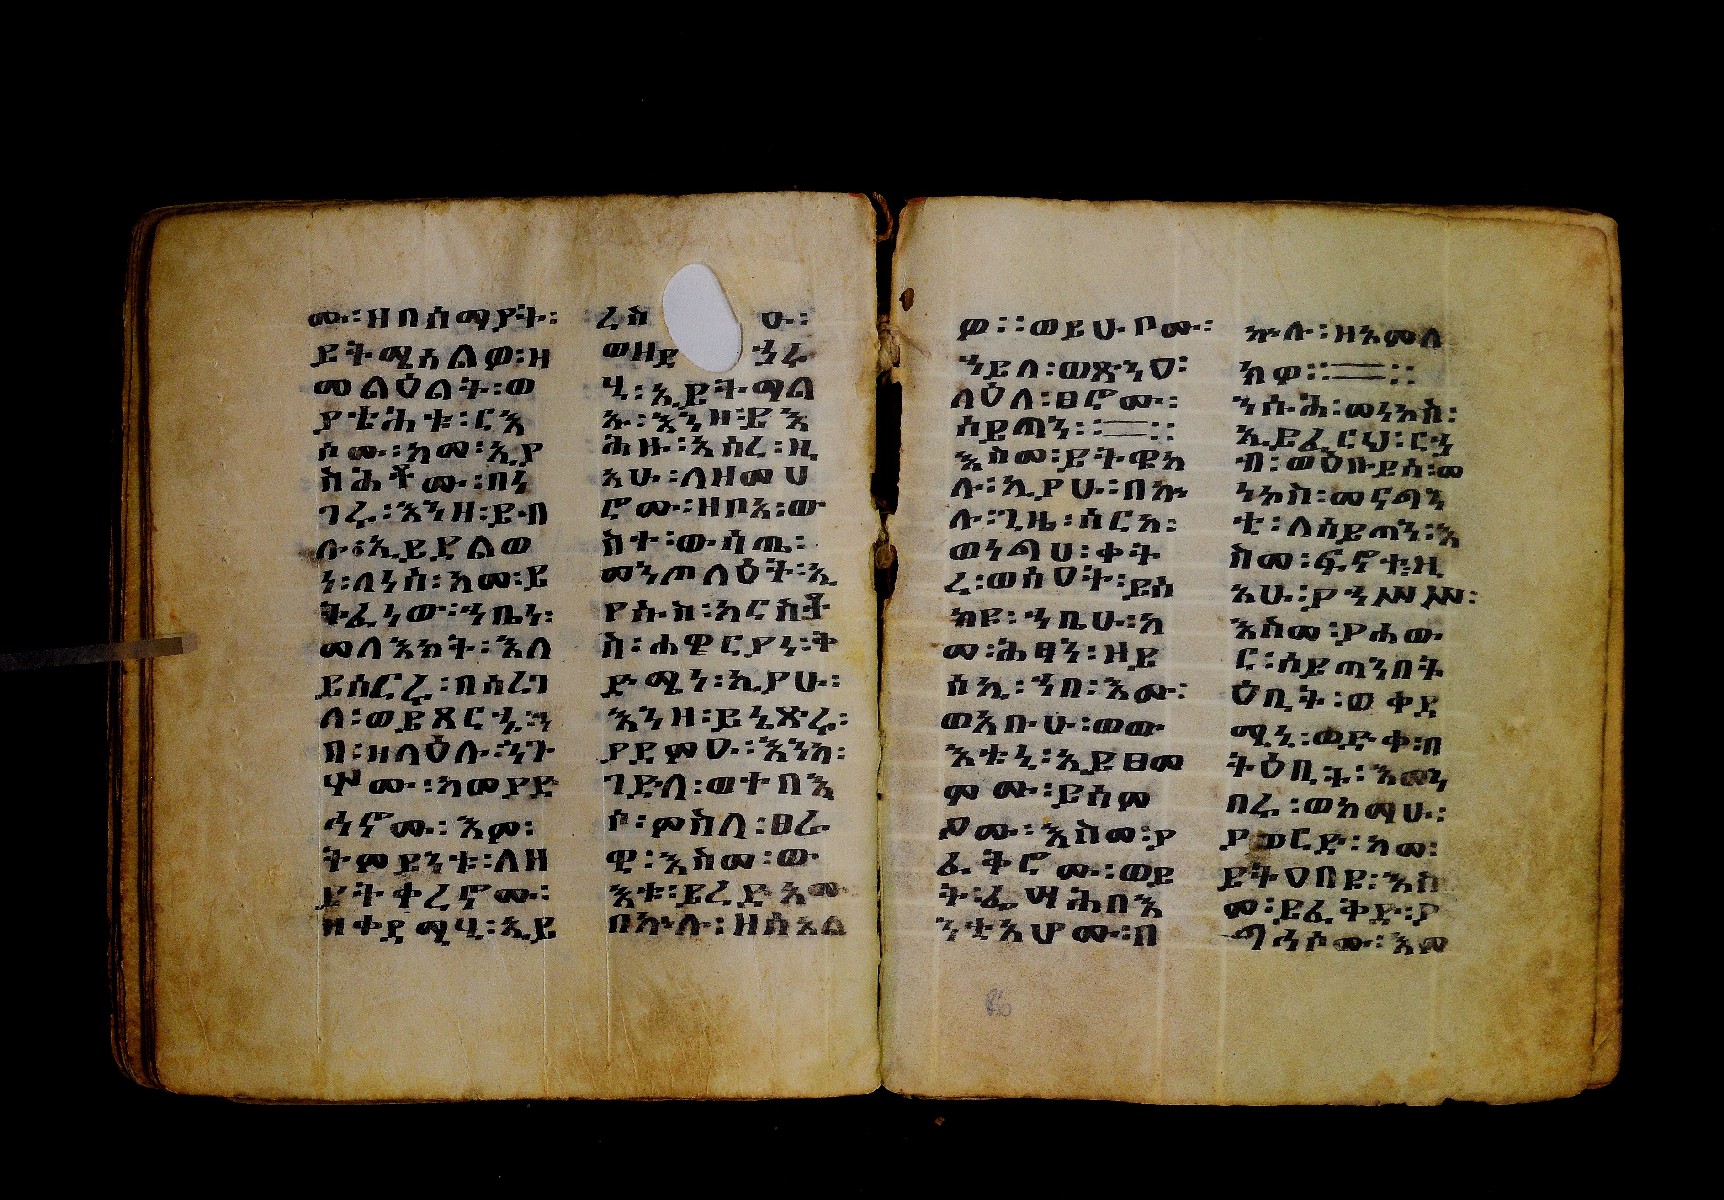 ሙ፡ዘበሰማያት፡
ይትሚሰልዎ፡ዘ
መልዕልት፡ወ
ያቲሕቱ፡ርእ
ሶሙ፡ከመ፡ኢያ
ስሕቶሙ፡በነ
ገሩ፡እንዘ፡ይብ
ሉ፡ኢይደልወ
ነ፡ለነሰ፡ከመ፡ይ
ትፈነው፡ኀቤነ፡
መለእክት፡እለ
ይሰርሩ፡በሰረገ
ለ፡ወይጸርኁ፡ኀ
በ፡ዘላዕሉ፡ነገ
ሥሙ፡ከመያድ
ኅኖሙ፡እም፡
ትምይንቱ፡ለዘ
ይትቀረኖሙ፡
ዘቀዳሚሃ፡ኢይ
ሬስ ሁ፡
ወዘይ ኀሬ
ሃ፡ኢይትማል
ኡ፡እንዘ፡ይእ
ሕዙ፡አሰረ፡ዚ
አሁ፡ለዘመሀ
ሮሙ፡ዘቦአ፡ው
ስተ፡ውሳጤ፡
መንጦላዕት፡ኢ
የሱስ፡ክርስቶ
ስ፡ሐዋርያነ፡ቅ
ድሚነ፡ኢያሁ፡
እንዘ፡ይኔጽሩ፡
ያደምዑ፡እንከ፡
ገድለ፡ወተበእ
ሶ፡ምስለ፡ፀራ
ዊ፡እስመ፡ው
እቱ፡ይረድአሙ
በኵሉ፡ዘሰአል
ዎ፡፡ወይሁቦሙ፡
ኀይለ፡ወጽንዐ፡
ላዕለ፡ፀሮሙ፡
ሰይጣን፡፡
እስመ፡ይትዌከ
ሉ፡ኢያሁ፡በኵ
ሉ፡ጊዜ፡ሰርከ፡
ወነግሀ፡ቀት
ረ፡ወሰዐት፡ይሰ
ክዩ፡ኀቢሁ፡ከ
መ፡ሕፃን፡ዘይ
ሰኢ፡ኀበ፡እሙ፡
ወአቡሁ፡ወው
እቱኒ፡ኢይፀመ
ሞሙ፡ይሰም
ዖሙ፡እስመ፡ያ
ፈቅሮሙ፡ወይ
ት፡ፌሣሕበእ
ንቲአሆሙ፡በ
ኵሉ፡ዘአመለ
ክዎ፡፡፡፡
ንሱሕ፡መነኮስ፡
ኢይፈርህ፡ርኁ
ብ፡ወዕበይሰ፡መ
ነኮስ፡መርግን
ቲ፡ለሰይጣን፡እ
ስመ፡ፍኖቱ፡ዚ
አሁ፡ያኀ
እስመ፡ያሐው
ር፡ሰይጣንበት
ዕቢት፡ወቀዳ
ሚኒ፡ወድቀ፡በ
ትዕቢት፡እመን
በሩ፡ወከማሁ፡
ያወርድ፡ከመ፡
ይትዐበይ፡እስ
መ፡ይፈቅድ፡ያ
ግኅሶሙ፡እም